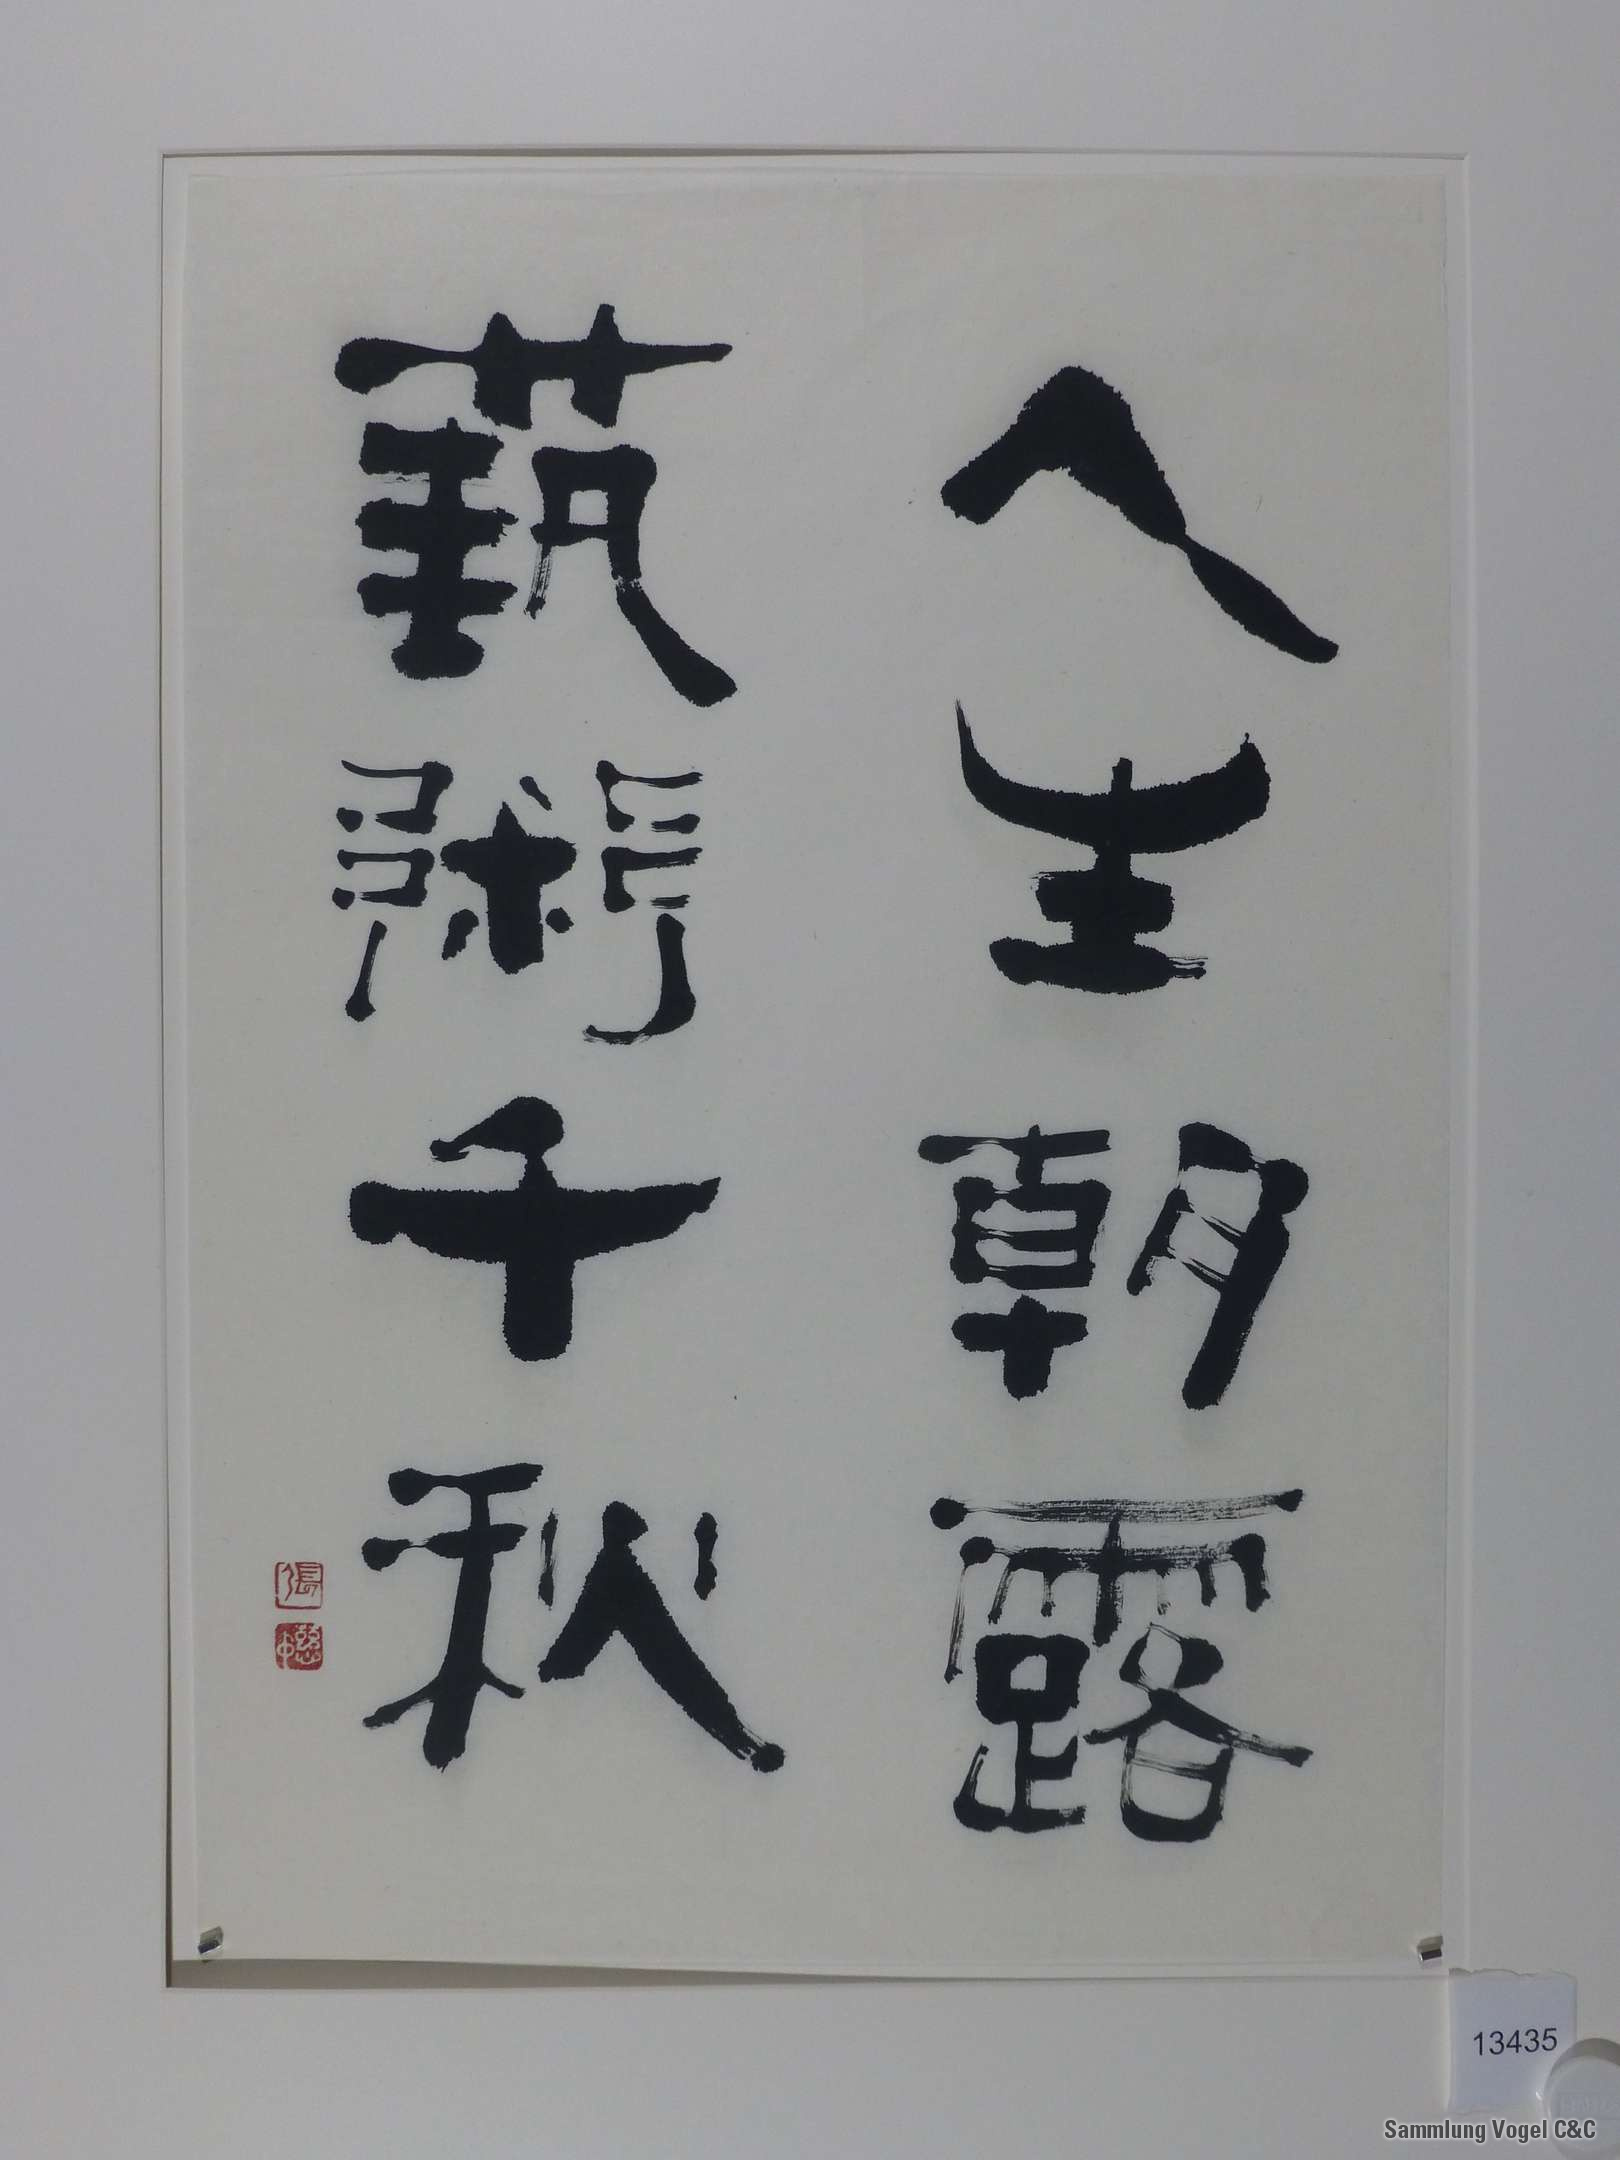 人生朝露
蓺術千秋
張
慈中
13435
Sammlung Vogel C&C